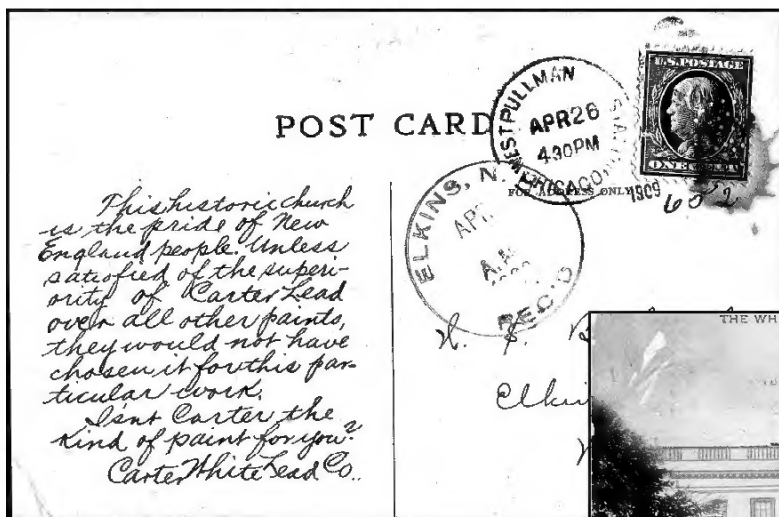 U.S. POSTAGE
ONE CENT
WEST PULLMAN STATION
APR 26
4 30 PM
CHICAGO
1909
POST CARD
FOR ADDRESS ONLY
602
ELKINS, N.
AP
A.M
REC'D
This historic church
is the pride of New
England people. Unless
satisfied of the superi-
ority of Carter Lead
over all other paints,
they would not have
chosen it for this par-
ticular work.
Isnt Carter the
kind of paint for you?
Carter White Lead Co.
H. S. B
Elki
N
THE WH